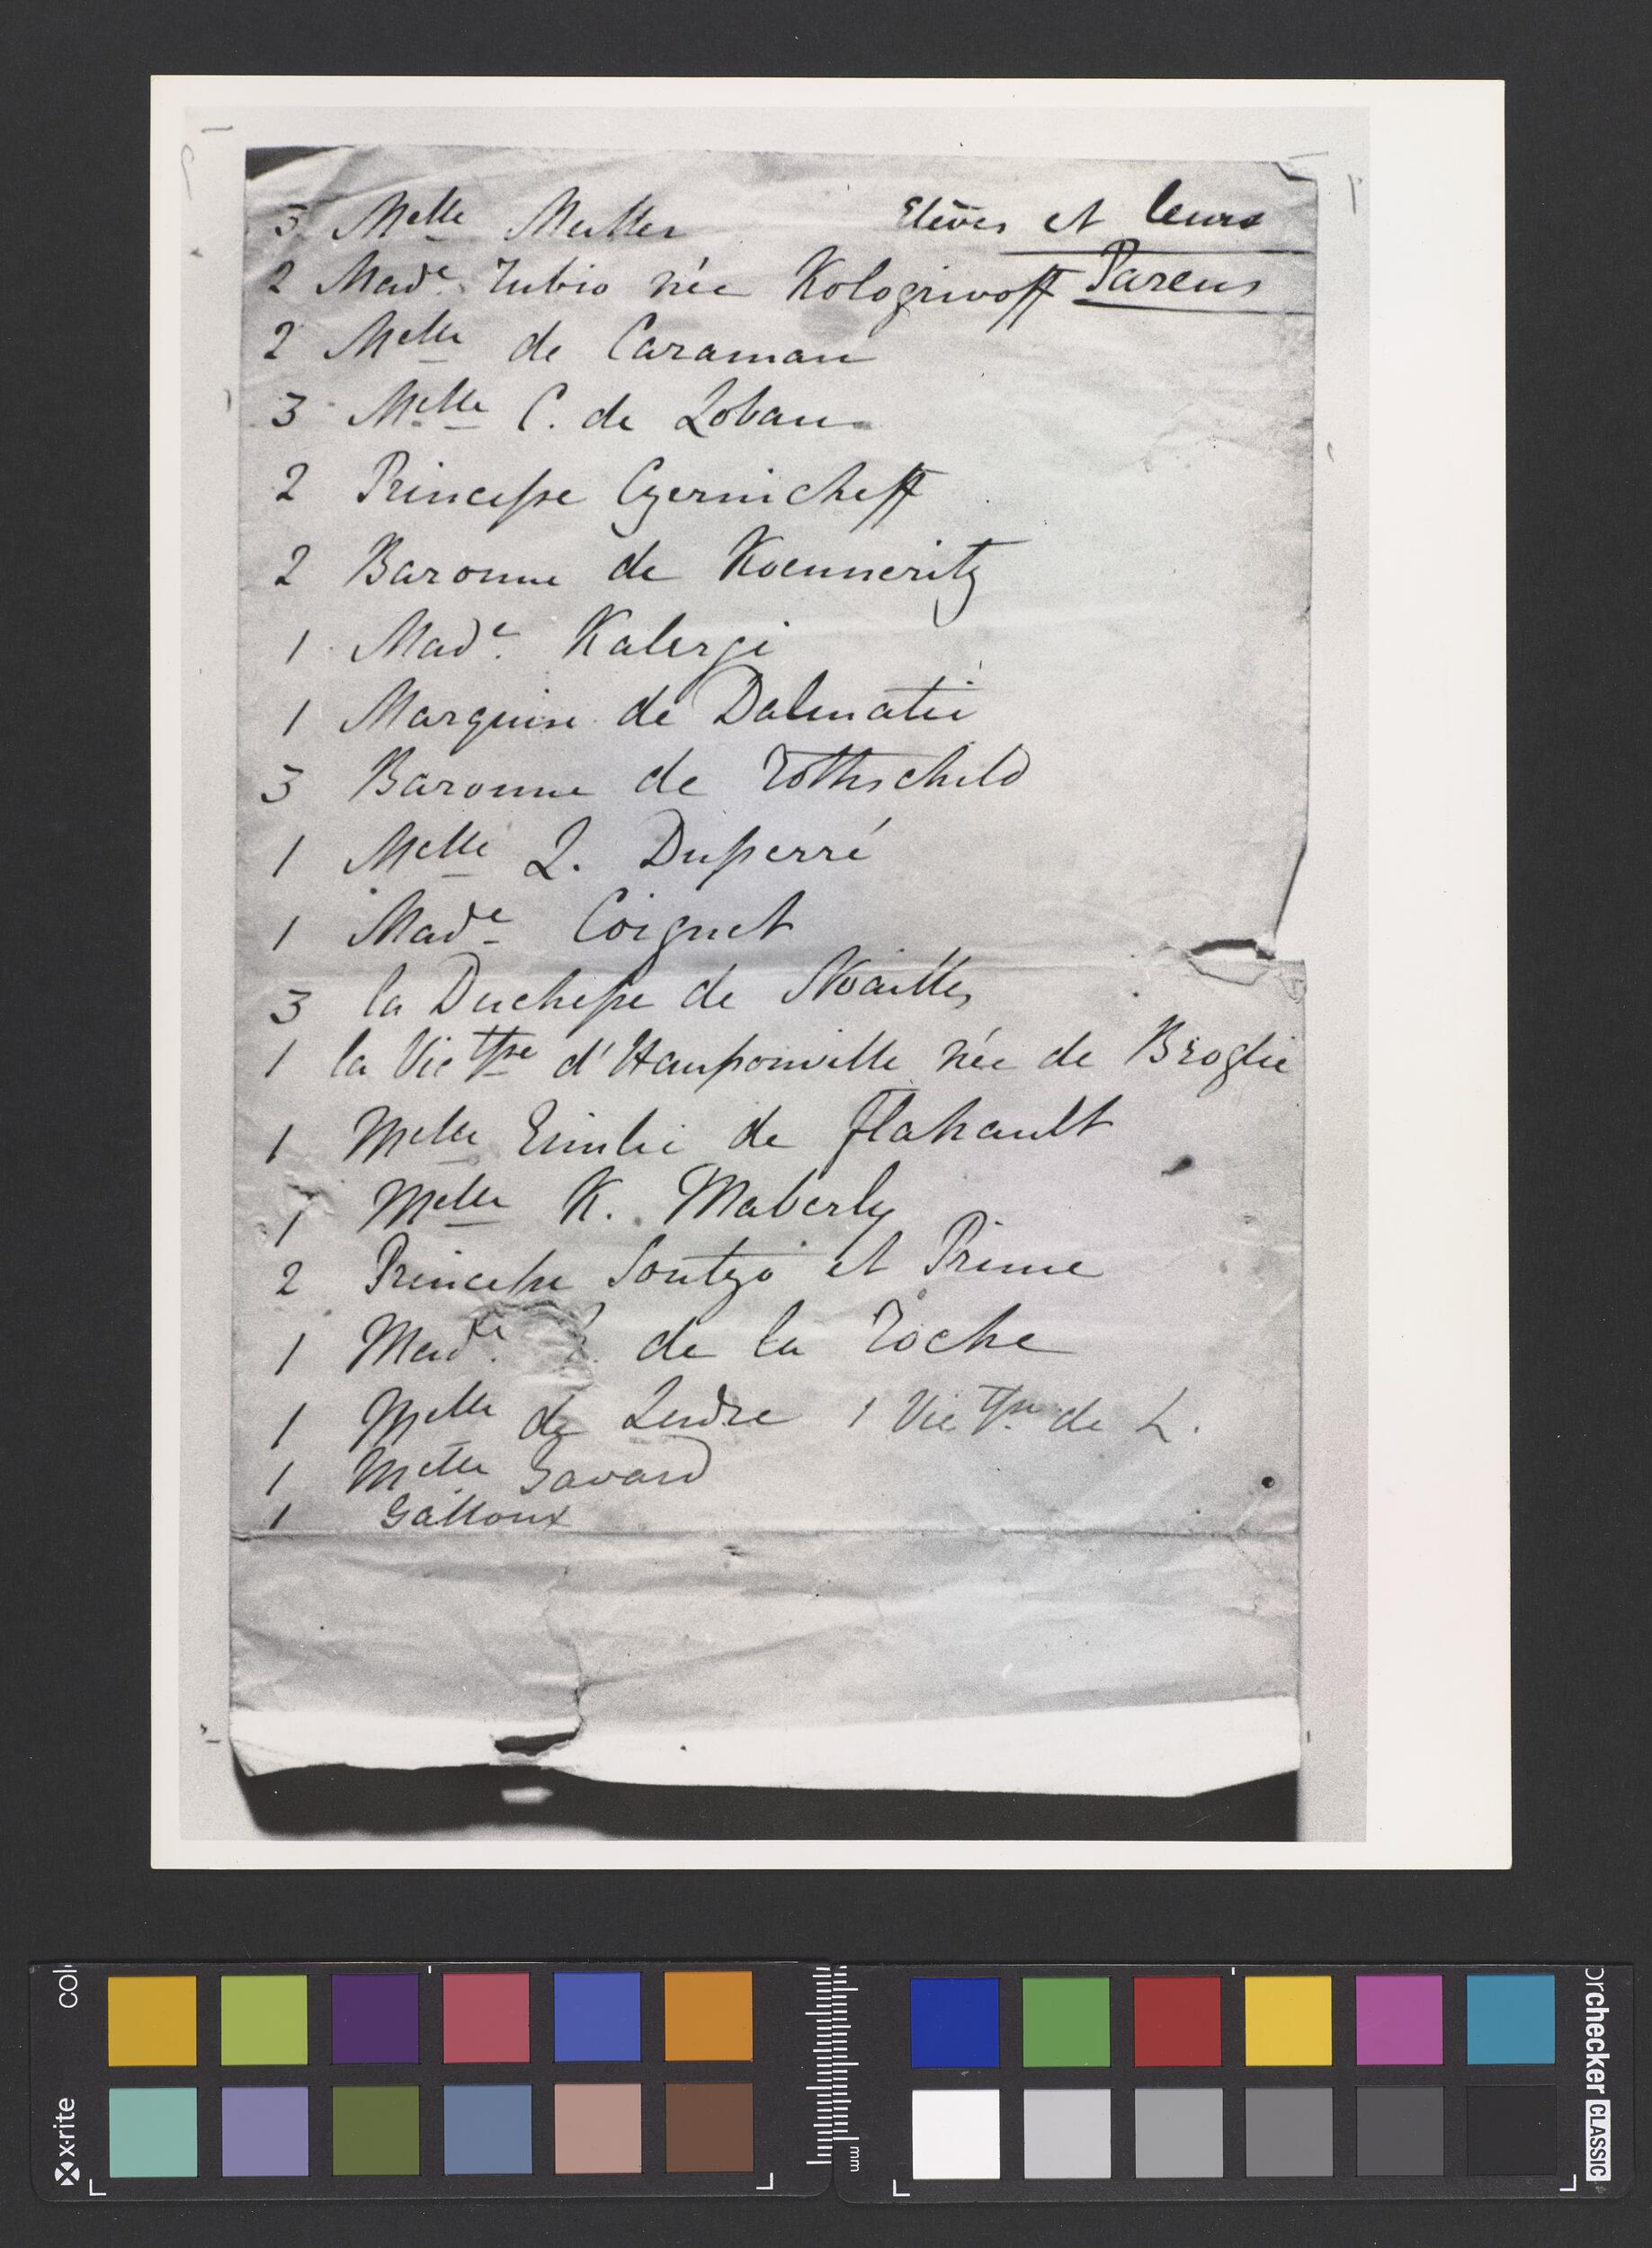 3 Melle Muller Elèves et leurs
2 Made Rubio née Kologrivoff Parens
2 Melle de Caraman
3 Melle C. de Lobau
2 Princesse Czernicheff
2 Baronne de Koenneritz
1 Made. Kalergi
1 Marquise de Dalmatie
3 Baronne de Rothschild
1 Melle L. Duperré
1 Made Coignet
3 la Duchesse de Noailles
1 la Victsse d'Haussonville née de Broglie
1 Melle Emilie de Flahault
1 Melle K. Maberly
2 Princesse Soutzo et Prince
1 Made. de la Roche
1 Melle de Lendre 1 Victsse de L.
1 Melle Gavard
1 Galloux
colo
x-rite
mm
orchecker CLASSIC